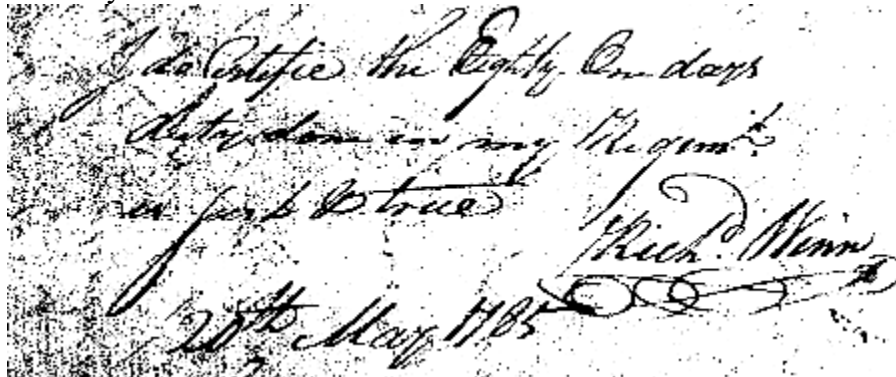 I do Certifie the Eighty One days
duty don in my Regimt.
is just & true
Richd. Winn
20th May 1785